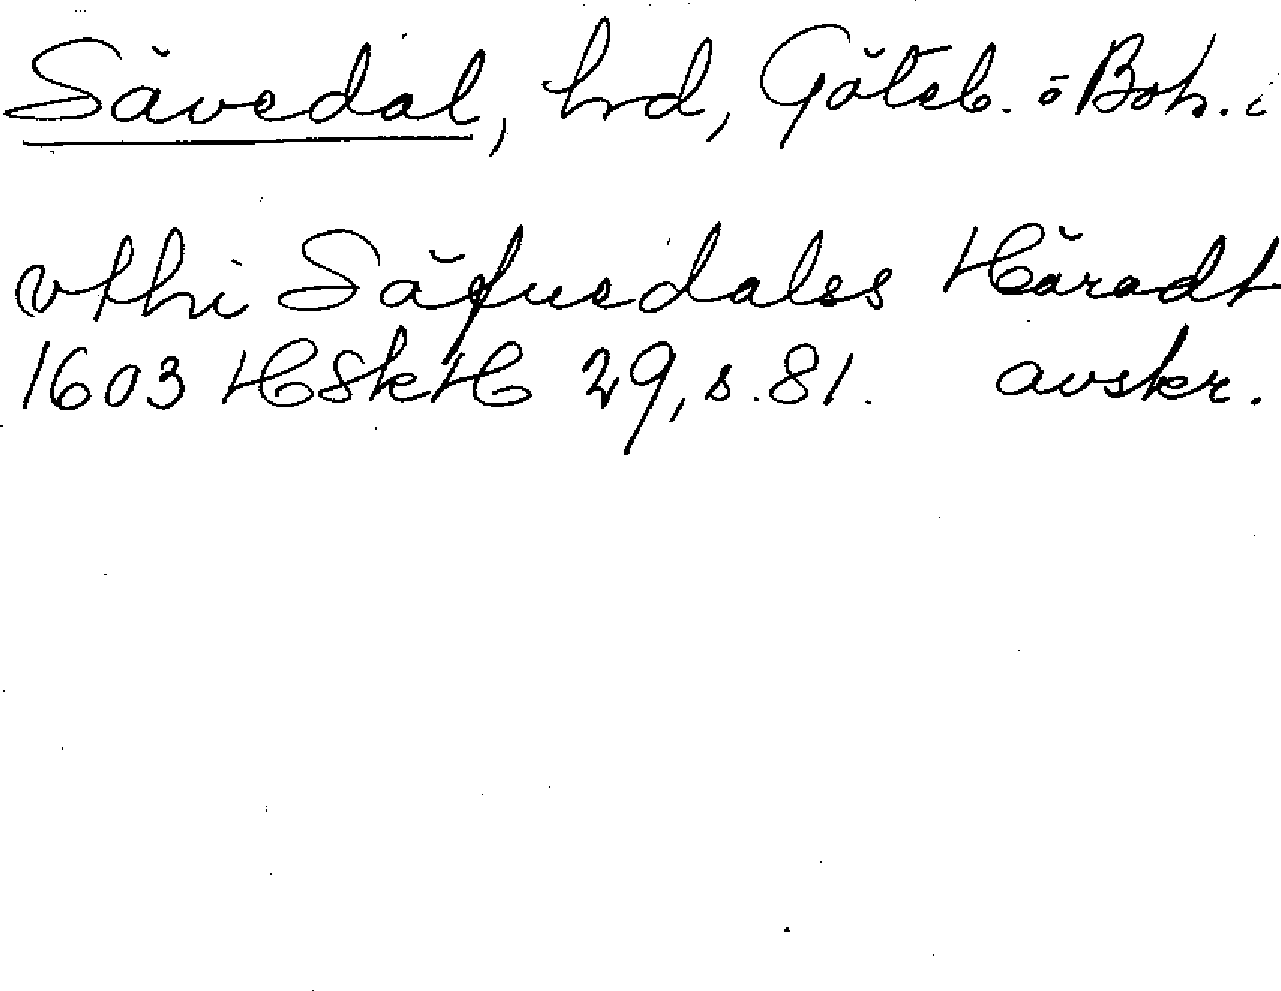 Sävedal, hrd, Göteb. o Boh. l
vthi Säfuedales Häradt
1603 HSkH 29, s. 81. avskr.